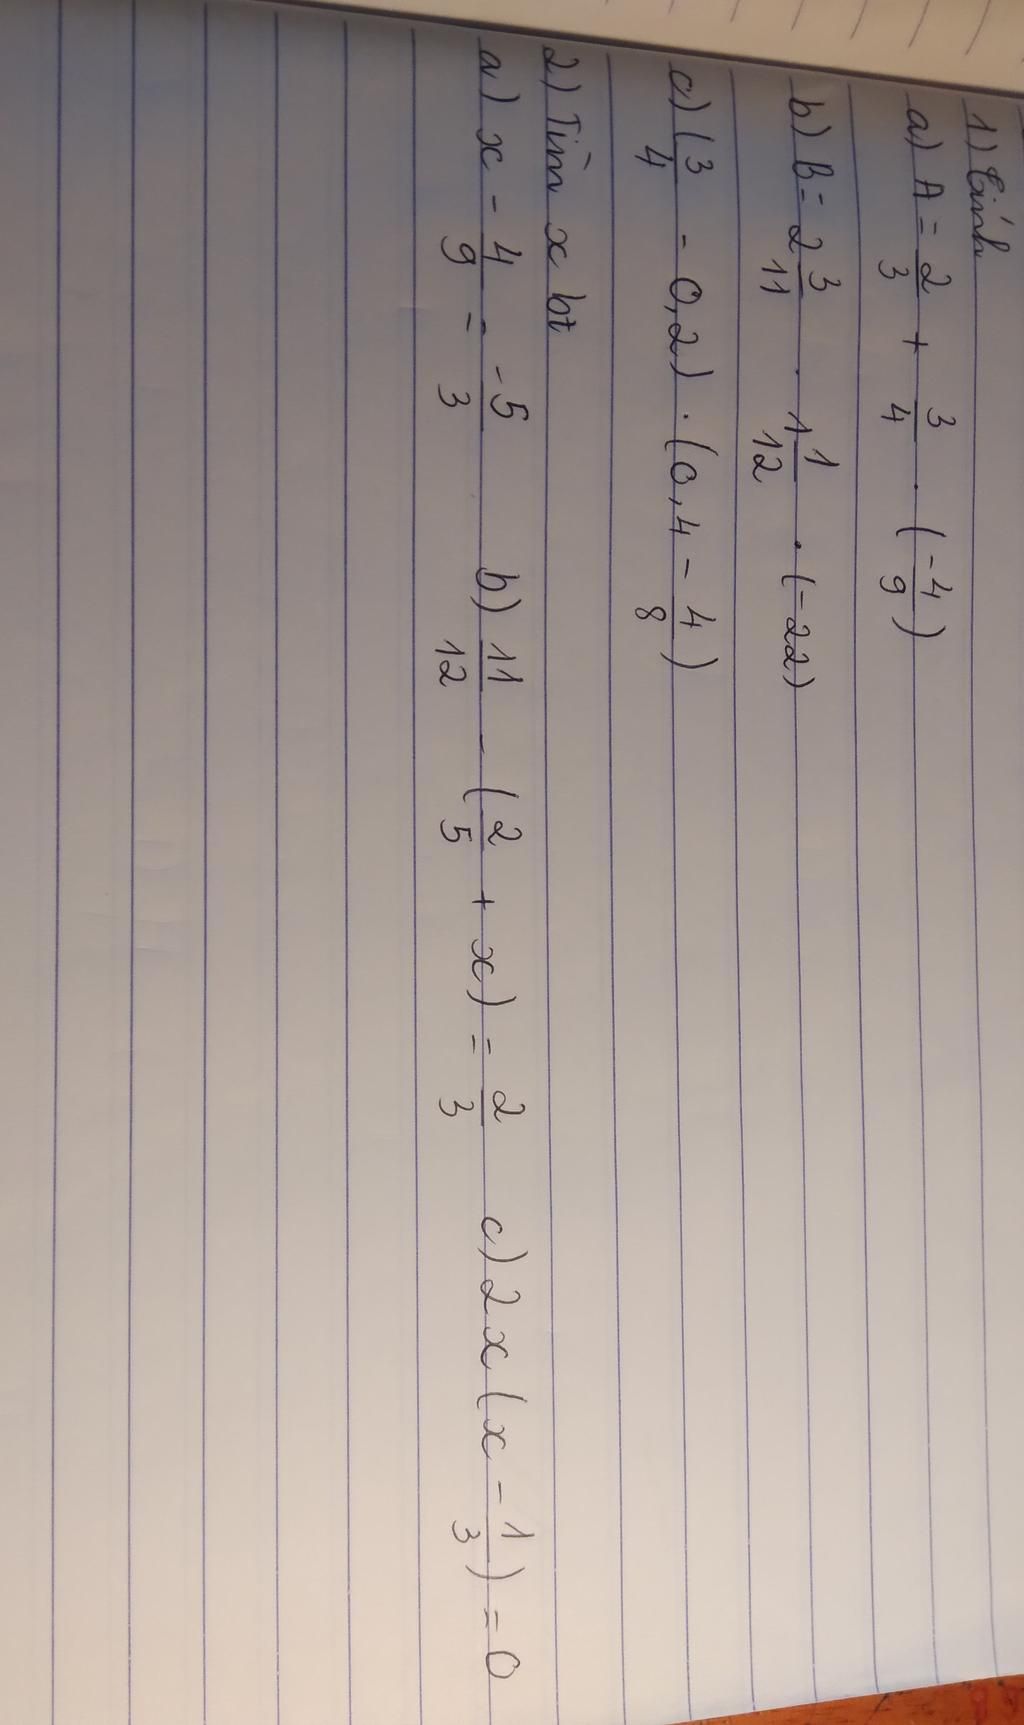 1) Tính
a) A = 2/3 + 3/4 . (-4/9)
b) B = 2 3/11 . 1 1/12 . (-22)
c) (3/4 - 0,2) . (0,4 - 4/8)
2) Tìm x bt
a) x - 4/9 = -5/3 b) 11/12 - (2/5 + x) = 2/3 c) 2x (x - 1/3) = 0